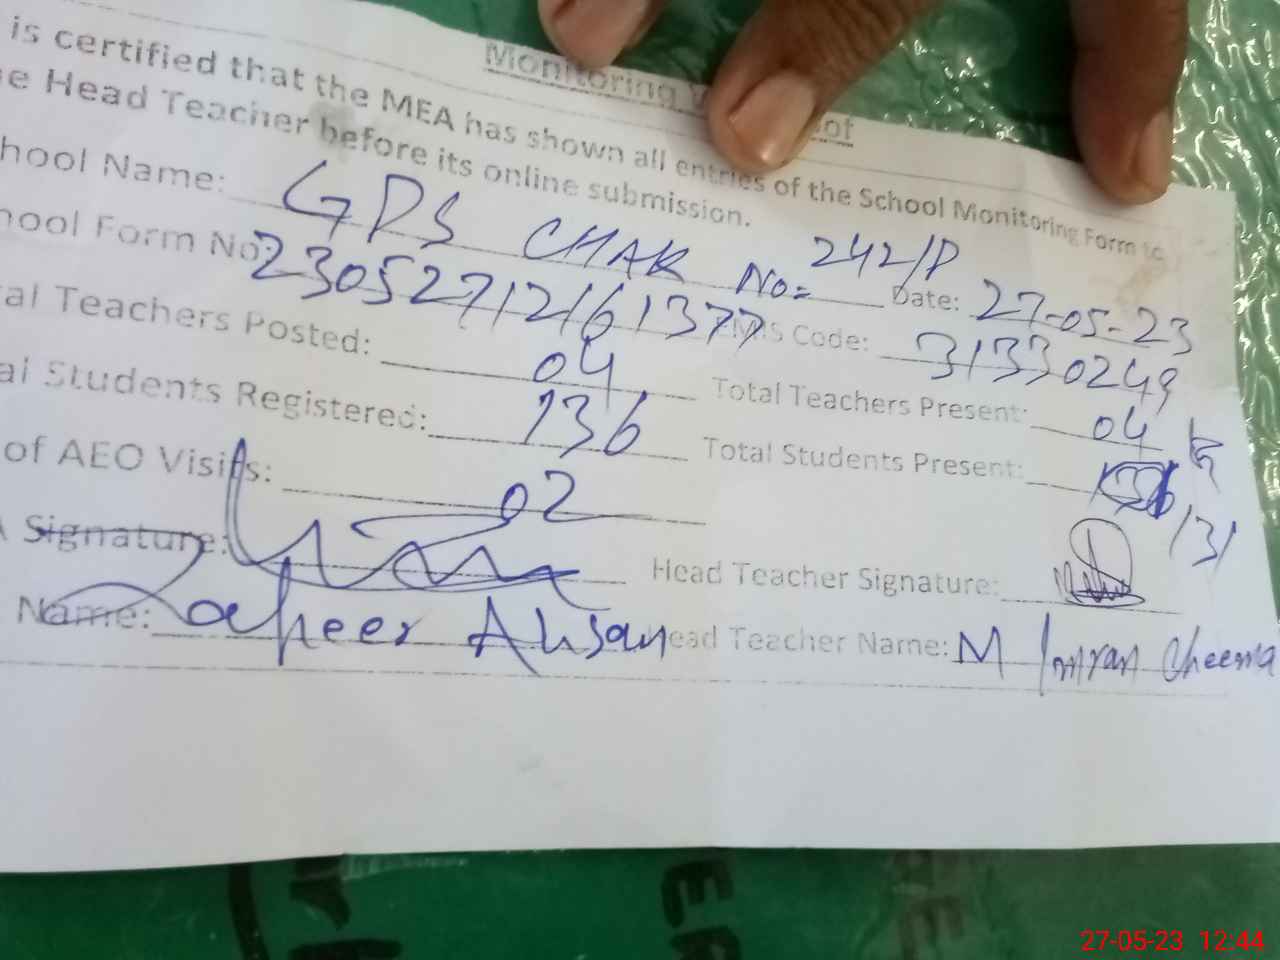 Monitoring
is certified that the MEA has shown all entries of the School Monitoring Form to
e Head Teacher before its online submission.
hool Name: GPS CHAK No= 242/P Date: 27-05-23
hool Form No: 2305271216 1377 EMIS Code: 31330249
al Teachers Posted: 04 Total Teachers Present: 04
al Students Registered: 136 Total Students Present: 131
of AEO Visits: 02
Signature: Head Teacher Signature:
Name: Zaheer Ahsan Head Teacher Name: M Imran Cheema
27-05-23 12:44